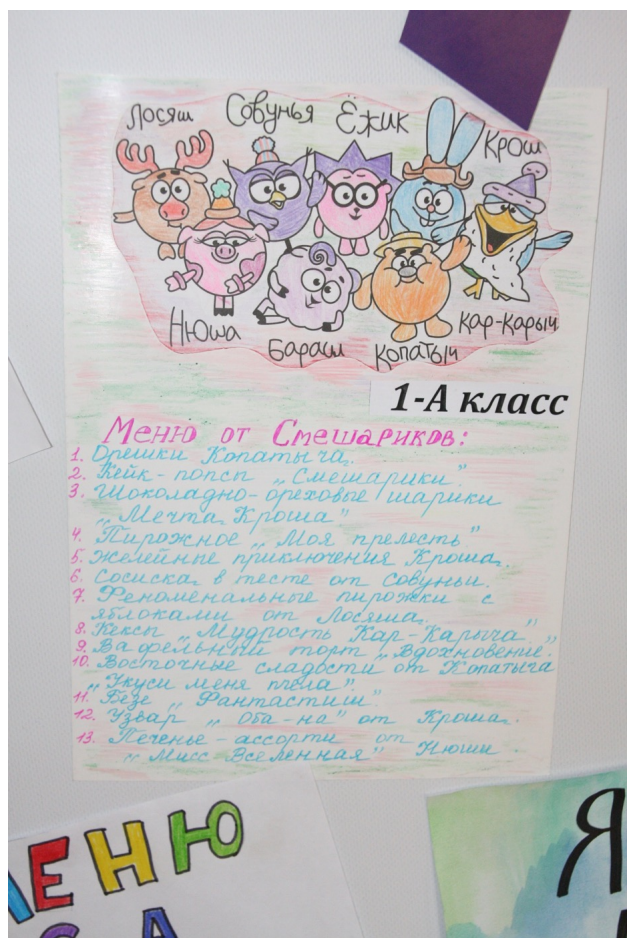 Лосяш Совунья Ёжик Крош
Нюша Бараш Копатыч Кар-Карыч
1-А класс
Меню от Смешариков:
1. Орешки Копатыча.
2. Кейк-попсы „Смешарики".
3. Шоколадно-ореховые шарики
„Мечта Кроша"
4. Пирожное „Моя прелесть"
5. Желейные приключения Кроша.
6. Сосиска в тесте от Совуньи.
7. Феноменальные пирожки с
яблоками от Лосяша.
8. Кексы „Мудрость Кар-Карыча"
9. Вафельный торт „Вдохновение".
10. Восточные сладости от Копатыча
„Укуси меня пчела".
11. Безе „Фантастиш".
12. Узвар „Оба-на" от Кроша.
13. Печенье-ассорти от Нюши
„Мисс Вселенная"
МЕНЮ
Я